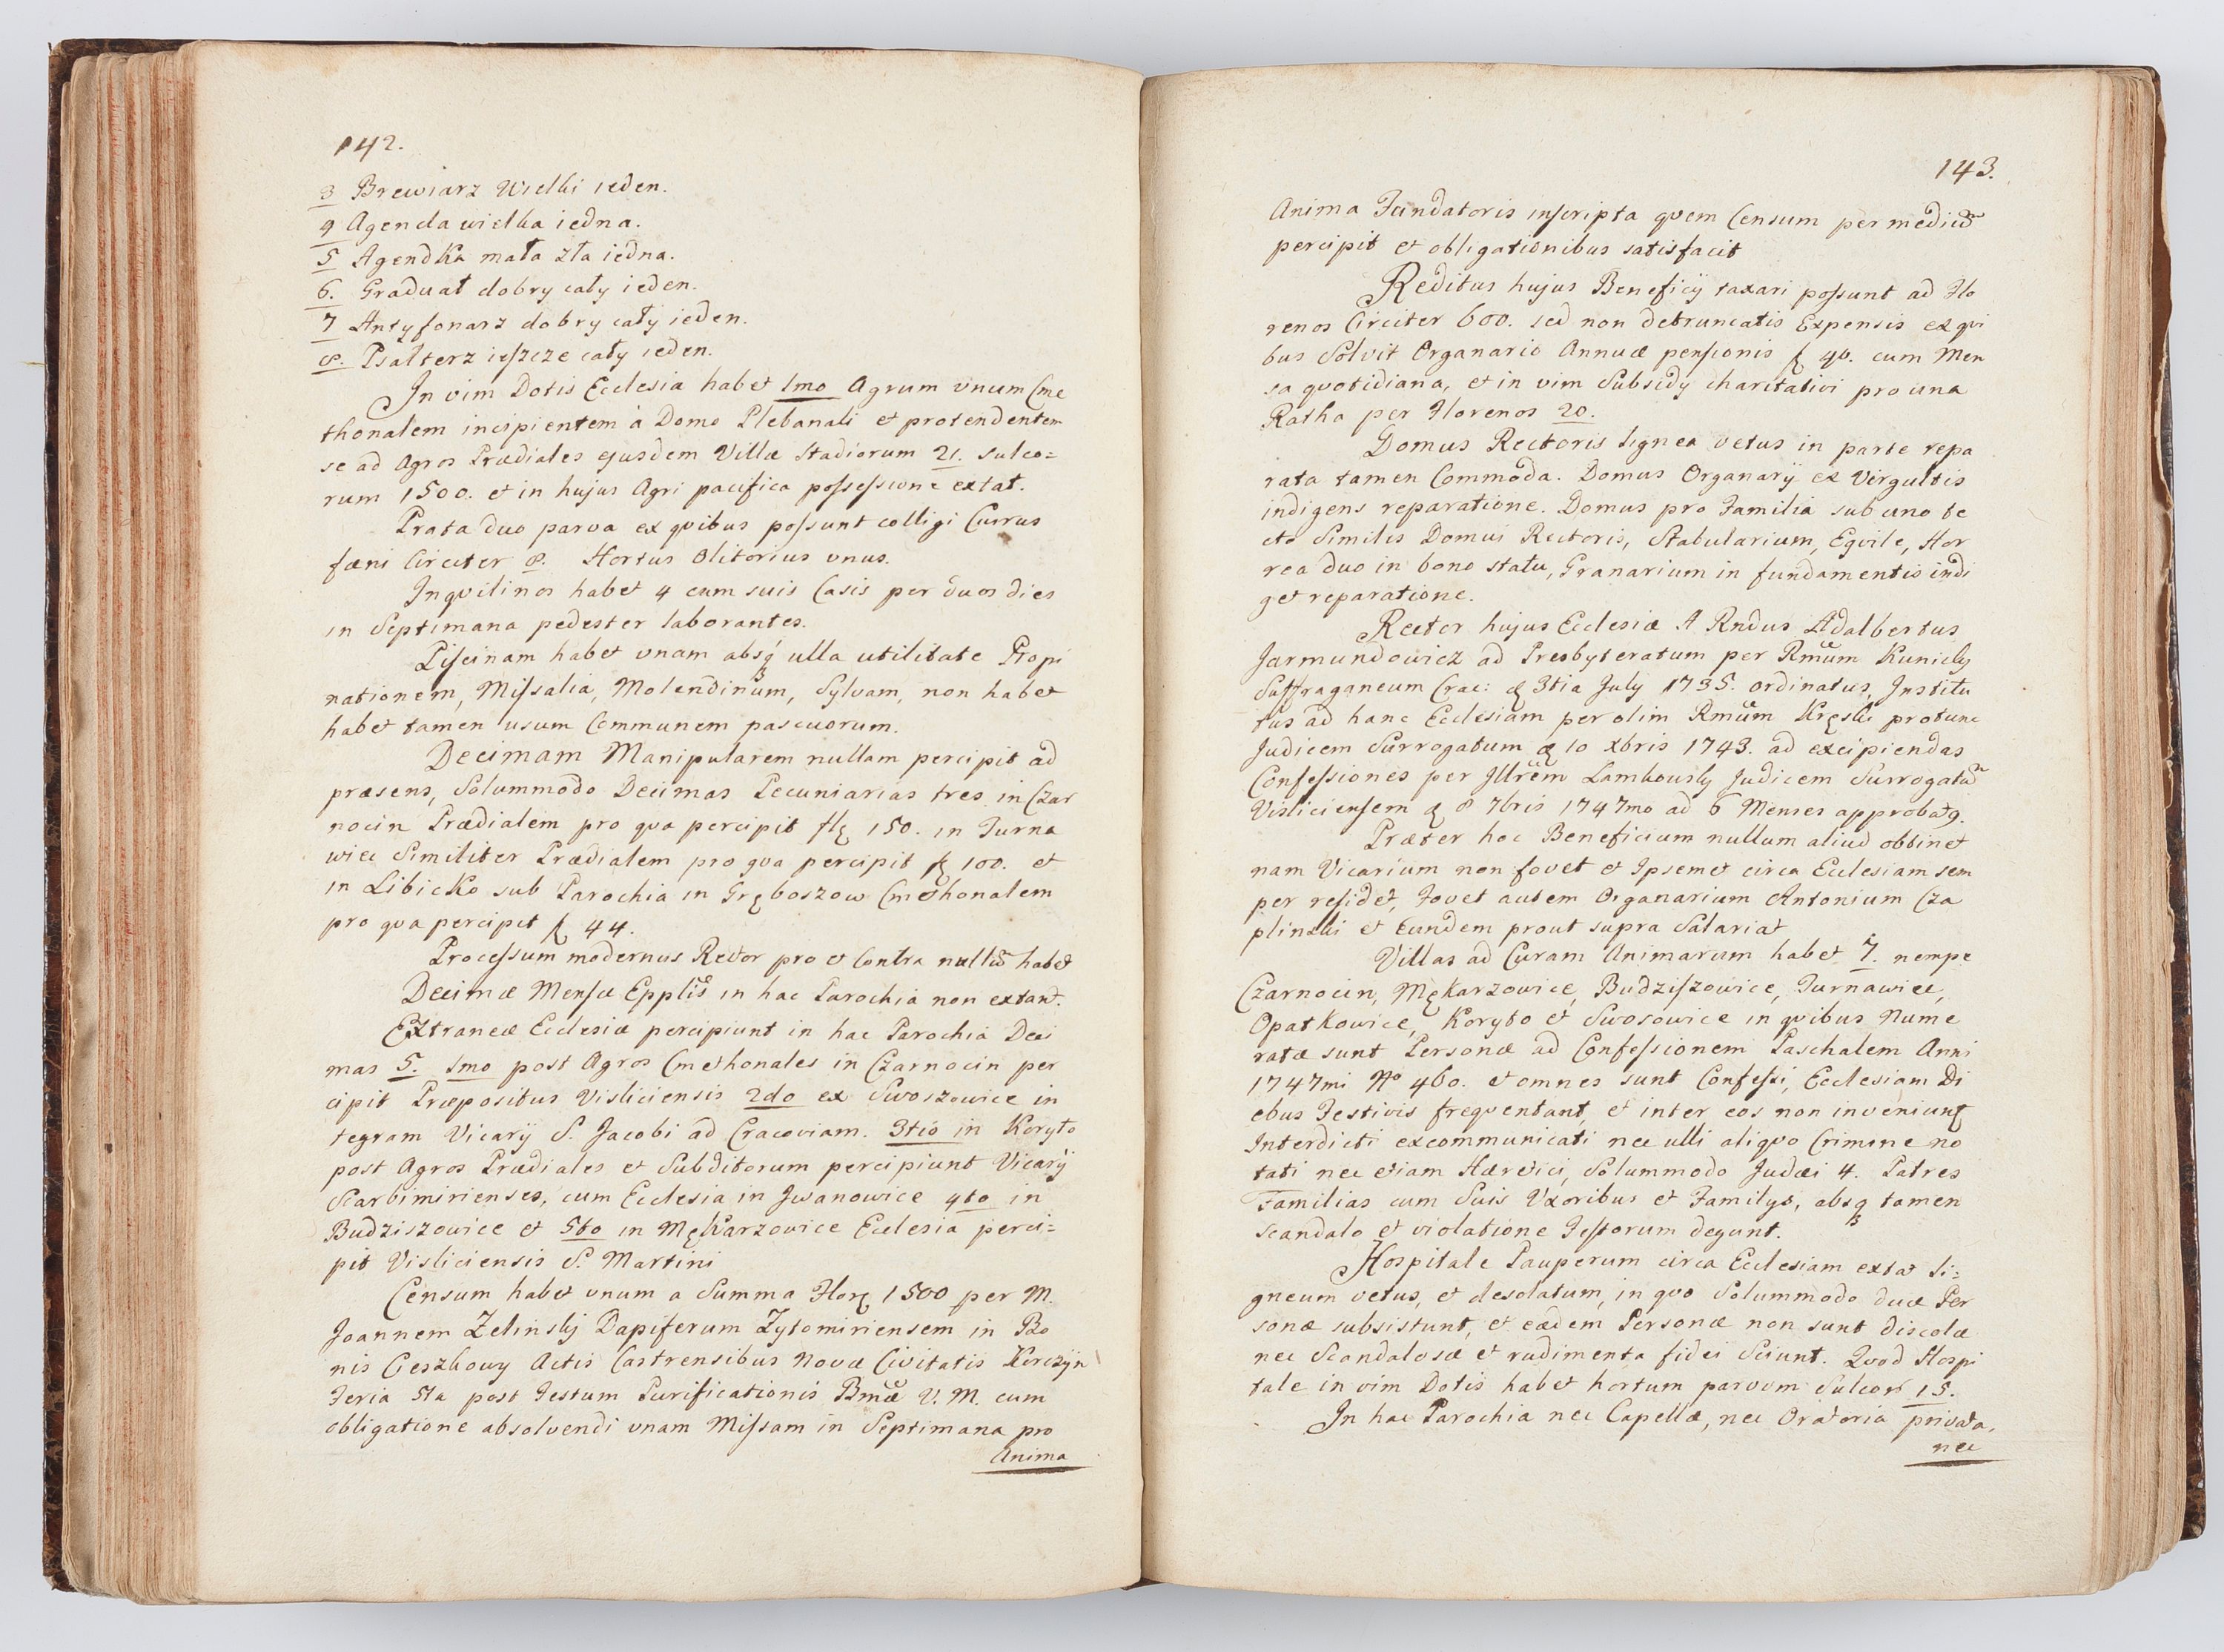 142.
3 Brewiarz Wielki ieden.
4 Agenda wielka iedna.
5 Agendka mała zła iedna.
6. Graduał dobry cały ieden.
7 Antyfonarz dobry cały ieden.
8. Psałterz ieszcze cały ieden.
In vim Dotis Ecclesia habet 1mo Agrum vnum Cme
thonalem incipientem à Domo Plebanali et protendentem
se ad Agros Prædiales ejusdem Villæ Stadiorum 21. sulco=
rum 1500. et in hujus Agri pacifica possessione extat.
Prata duo parva ex qvibus possunt colligi Currus
fæni Circiter 8. Hortus Olitorius vnus.
Inqvilinos habet 4 cum suis Casis per duos dies
in Septimana pedester laborantes.
Piscinam habet vnam absq ulla utilitate Propi
nationem, Missalia, Molendinum, Sylvam, non habet
habet tamen usum Communem pascuorum.
Decimam Manipularem nullam percipit ad
præsens, Solummodo Decimas Pecuniarias tres in Czar
nocin Prædialem pro qva percipit fl 150. in Turna
wiec Similiter Prædialem pro qva percipit f 100. et
in Libicko sub Parochia in Gręboszow Cmethonalem
pro qva percipit f 44.
Processum modernus Rector pro et Contra nullũ habet
Decimæ Mensæ Epplis in hac Parochia non extant.
Extraneæ Ecclesiæ percipiunt in hac Parochia Deci
mas 5. 1mo post Agros Cmethonales in Czarnocin per
cipit Præpositus Visliciensis 2do ex Swoszowice in
tegram Vicarÿ S. Jacobi ad Cracoviam. 3tio in Koryto
post Agros Prædiales et Subditorum percipiunt Vicarÿ
Scarbimirienses, cum Ecclesia in Jwanowice 4to in
Budziszowice et 5to in Mękarzowice Ecclesia perci=
pit Visliciensis S. Martini
Censum habet vnum a Summa Flor 1500 per M.
Joannem Zelinsky Dapiferum Zytomiriensem in Bo
nis Cieszkowy Actis Castrensibus Novæ Civitatis Korczÿn
Feria 5ta post Festum Purificationis Bmæ V. M. cum
obligatione absolvendi vnam Missam in Septimana pro
Anima
143.
Anima Fundatoris inscripta qvem Censum per mediũ
percipit et obligationibus satisfacit
Reditus hujus Beneficÿ taxari possunt ad Flo
renos Circiter 600. sed non detruncatis Expensis ex qvi
bus Solvit Organario Annuæ pensionis f 40. cum Men
sa qvotidiana, et in vim Subsidÿ charitativi pro una
Ratha per Florenos 20.
Domus Rectoris lignea vetus in parte repa
rata tamen Commoda. Domus Organarÿ ex Virgultis
indigens reparatione. Domus pro Familia sub uno te
cto Similis Domui Rectoris, Stabularium, Eqvile, Hor
rea duo in bono statu, Granarium in fundamentis indi
get reparatione.
Rector hujus Ecclesiæ A Rndus Adalbertus
Jarmundowicz ad Presbyteratum per Rmum Kunicky
Suffraganeum Crac: d 3tia July 1735. ordinatus, Institu
tus ad hanc Ecclesiam per olim Rmum Kręski protunc
Judicem Surrogatum d 10 Xbris 1743. ad excipiendas
Confessiones per Jllrem Lambousky Judicem Surrogatũ
Visliciensem d 8 7bris 1747mo ad 6 Menses approbatg.
Præter hoc Beneficium nullum aliud obtinet
nam Vicarium non fovet et Ipsemet circa Ecclesiam sem
per residet, Fovet autem Organarium Antonium Cza
plinski et Eundem prout supra Salariat
Villas ad Curam Animarum habet 7. nempe
Czarnocin, Mękarzowice, Budziszowice, Turnawiec,
Opatkowice, Koryto et Swosowice in qvibus Nume
ratæ sunt Personæ ad Confessionem Paschalem Anni
1747mi No 460. et omnes sunt Confessi, Ecclesiam Di
ebus Festivis freqventant, et inter eos non inveniunt
Interdicti excommunicati nec ulli aliqvo Crimine no
tati nec etiam Hæretici, Solummodo Judæi 4. Patres
Familias cum Suis Vxoribus et Familÿs, absq tamen
scandalo et violatione Festorum degunt.
Hospitale Pauperum circa Ecclesiam extat li=
gneum vetus, et desolatum, in qvo Solummodo duæ Per
sonæ subsistunt, et eædem Personæ non sunt discolæ
nec Scandalosæ et rudimenta fidei Sciunt. Qvod Hospi
tale in vim Dotis habet hortum parvum Sulcor 15.
In hac Parochia nec Capellæ, nec Oratoria privata,
nec